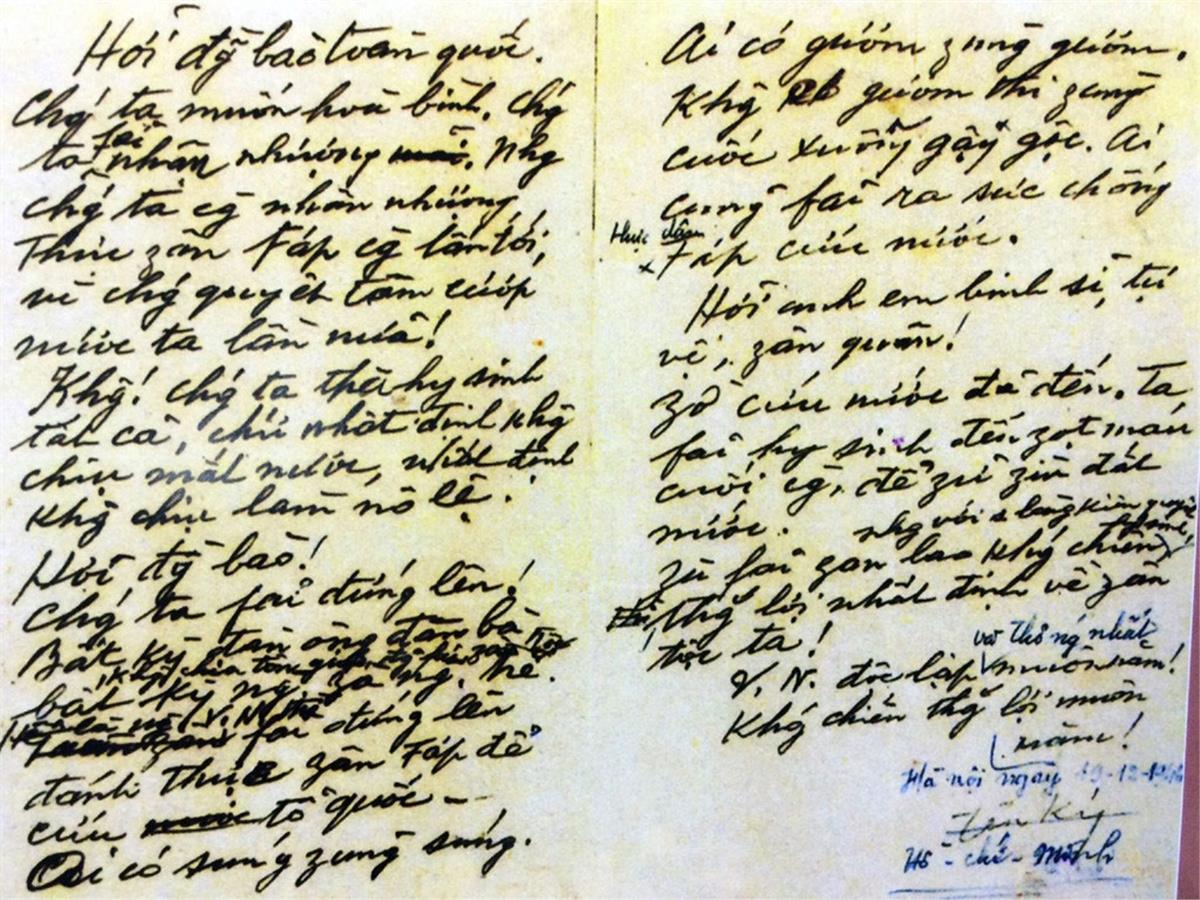 Hỡi đg̀ bào toàn quốc.
Chǵ ta muốn hoà bình, chǵ
ta fải nhân nhượng. Nhg
chǵ ta cg̀ nhân nhượng
Thực zân Fáp cg̀ lấn tới,
vì chǵ quyết tâm cướp
nước ta lần nữa!
Khg! chǵ ta thà hy sinh
tất cả, chứ nhất định khg
chịu mất nước, nhất định
khg chịu làm nô lệ.
Hỡi đg̀ bào!
Chǵ ta fải đứng lên!
Bất kỳ đàn ông đàn bà
bất kỳ ng zà ng. trẻ.
khg chia tôn záo, đg̉ fái, zân tộc
Hễ là ng V.N. thì
fải đứng lên
đánh thực zân Fáp để
cứu tổ quốc –
Ai có súng zùng súng.
Ai có gươm zùng gươm,
Khg có gươm thì zùng
cuốc xuổng gậy gộc. Ai
cũng fải ra sức chống
thực dân
Fáp cứu nước.
Hỡi anh em binh sĩ, tự
vệ, zân quân!
Zờ cứu nước đã đến. Ta
fải hy sinh đến zọt máu
cuối cg̀, để zữ zìn đất
nước.
Zù fải zan lao khǵ chiến
nhg với 1 lòng kiên quyết
hy sinh,
thǵ lợi nhất định về zân
tộc ta!
V. N. độc lập và thống nhất muôn năm!
Khǵ chiến thǵ lợi muôn
năm!
Hà nội ngày 19-12-1946
Hồ-chí-Minh